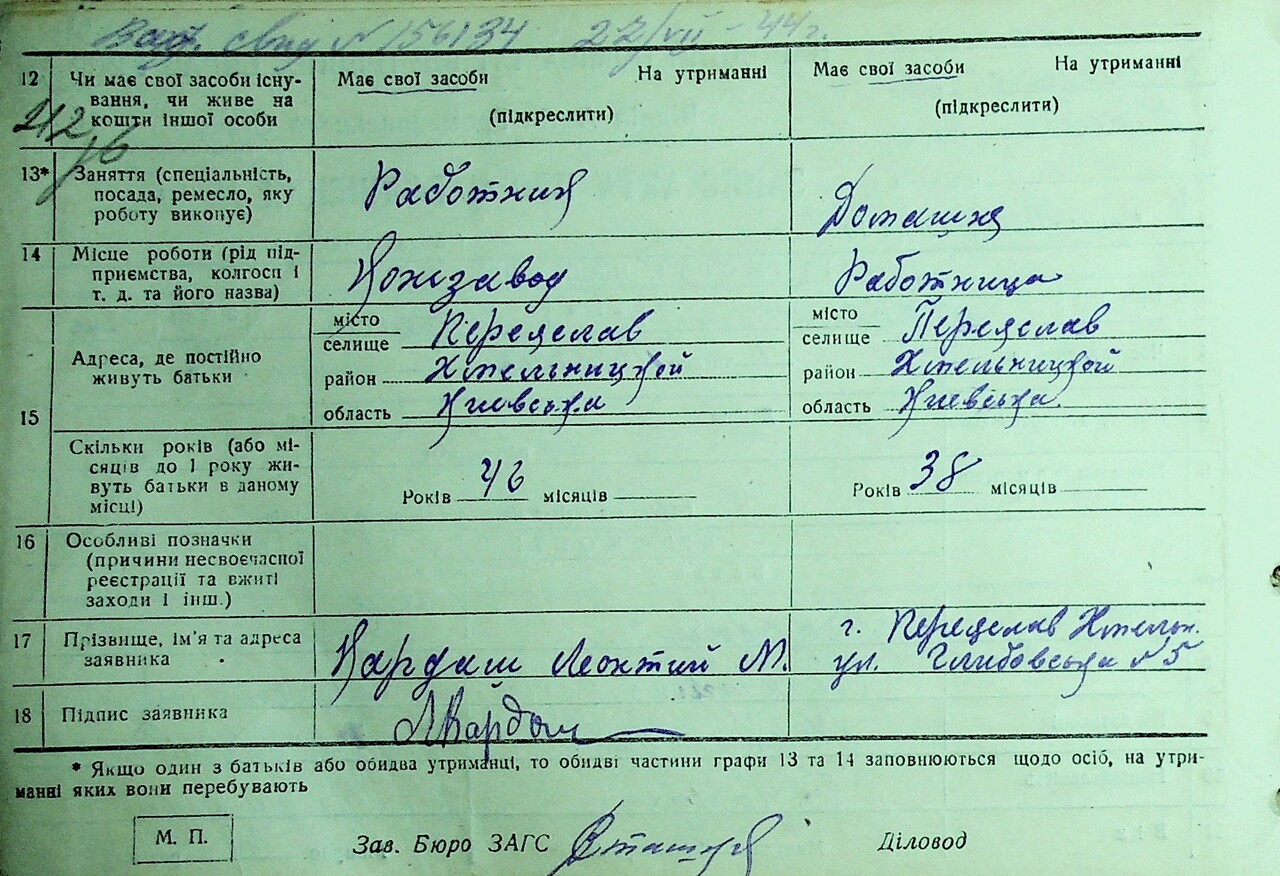 свид № 156134 27/VII - 44 г.
12 Чи має свої засоби існу-
вання, чи живе на
кошти іншої особи
Має свої засоби На утриманні
(підкреслити)
Має свої засоби На утриманні
(підкреслити)
13* Заняття (спеціальність,
посада, ремесло, яку
роботу виконує)
Работник
Домашня
14 Місце роботи (рід під-
приємства, колгосп і
т. д. та його назва)
Кожзавод
Работница
15 Адреса, де постійно
живуть батьки
місто
селище Переяслав
район Хмельницкой
область Киевська
місто
селище Переяслав
район Хмельницкой
область Киевська
Скільки років (або мі-
сяців до 1 року жи-
вуть батьки в даному
місці)
Років 46 місяців
Років 38 місяців
16 Особливі позначки
(причини несвоєчасної
реєстрації та вжиті
заходи і інш.)
17 Прізвище, ім'я та адреса
заявника
Кардаш Леонтий М.
г. Переяслав Хмельн.
ул. №5
18 Підпис заявника
* Якщо один з батьків або обидва утриманці, то обидві частини графи 13 та 14 заповнюються щодо осіб, на утри-
манні яких вони перебувають
М. П. Зав. Бюро ЗАГС Діловод